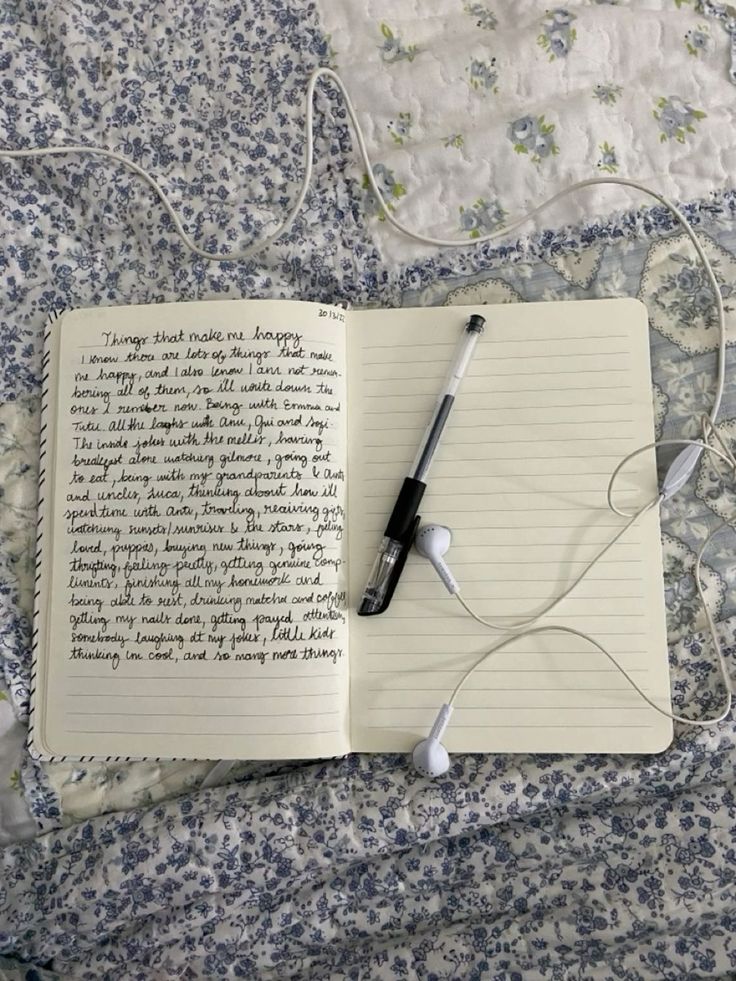 30/3/22
Things that make me happy
I know there are lots of things that make
me happy, and I also know I am not remem-
bering all of them, so ill write down the
ones I remember now. Being with Emma and
Tutu. All the laughs with Anu, Gui and Sofi.
The inside jokes with the mellis, having
breakfast alone watching gilmore, going out
to eat, being with my grandparents & Aunts
and uncles, Luca, thinking about how ill
spend time with Antu, traveling, reaiving gifts,
watching sunsets/sunrises & the stars, feeling
loved, puppies, buying new things, going
thrifting, feeling pretty, getting genuine comp-
liments, finishing all my homework and
being able to rest, drinking matcha and coffee,
getting my nails done, getting payed attention,
somebody laughing at my jokes, little kids
thinking im cool, and so many more things.